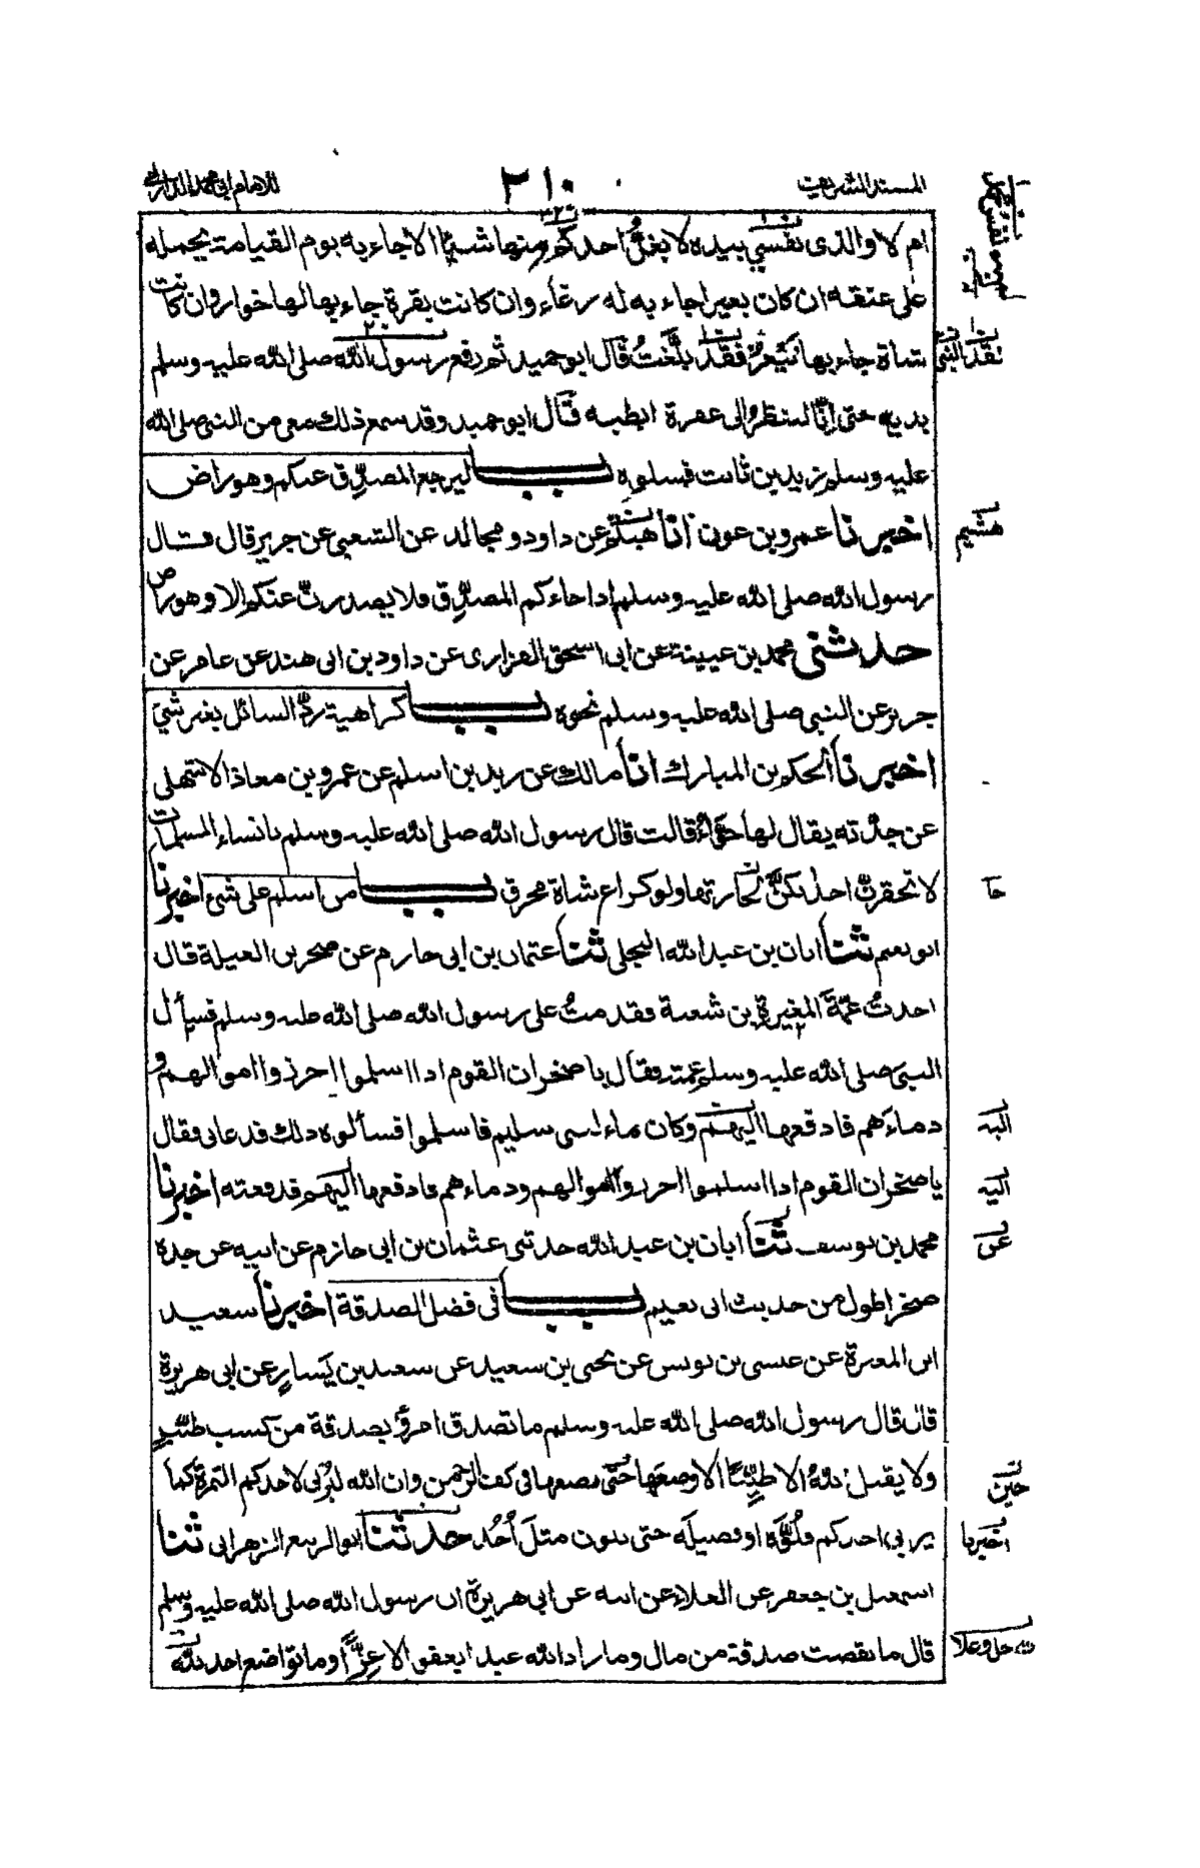 المسند الشريف ٢١٠ للامام ابي محمد الدارمي
ام لا والذى نفسي بيده لا يغلُّ احدكم منها شيئا الا جاء به يوم القيامة يحمله
على عنقه ان كان بعيرا جاء به له رغاء وان كانت بقرة جاء بها لها خوار وان كانت
شاة جاء بها تَيْعَرُ فقد بلّغتُ قال ابو حميد ثم رفع رسول الله صلى الله عليه وسلم
يديه حتى انّا لننظر الى عفرة ابطيه قال ابو حميد وقد سمع ذلك معى من النبى صلى الله
عليه وسلم زيد بن ثابت فسلوه باب ليرجع المصدّق عنكم وهو راض
اخبرنا عمرو بن عون انا هشيم عن داود و مجالد عن الشعبى عن جرير قال قال
رسول الله صلى الله عليه وسلم اذا جاءكم المصدّق فلا يصدرنّ عنكم الا وهو راض
حدثنى محمد بن عيينة عن ابى اسحق الفزارى عن داود بن ابى هند عن عامر عن
جرير عن النبي صلى الله عليه وسلم نحوه باب كراهية ردّ السائل بغير شيء
اخبرنا الحكم بن المبارك انا مالك عن زيد بن اسلم عن عمرو بن معاذ الاشهلى
عن جدّته يقال لها حوّاءُ قالت قال رسول الله صلى الله عليه وسلم يا نساء المسلمات
لا تحقرنّ احداكنّ لجارتها ولو كراع شاة محرق باب من اسلم على شىء اخبرنا
ابو نعيم ثنا ابان بن عبد الله البجلى ثنا عثمان بن ابى حازم عن صخر بن العيلة قال
اخذتُ عمّةَ المغيرة بن شعبة فقدمتُ على رسول الله صلى الله عليه وسلم فسأل
النبىَ صلى الله عليه وسلم عمته فقال يا صخر ان القوم اذا اسلموا احرزوا اموالهم و
دماءَهم فادفعها اليهم وكان ماء لبنى سليم فاسلموا فسألوه ذلك فدعانى فقال
يا صخر ان القوم اذا اسلموا احرزوا اموالهم ودماءهم فادفعها اليهم فدفعته اخبرنا
محمد بن يوسف ثنا ابان بن عبد الله حدثنى عثمان بن ابى حازم عن ابيه عن جده
صخر اطول من حديث ابى نعيم باب فى فضل الصدقة اخبرنا سعيد
ابن المغيرة عن عيسى بن يونس عن يحيى بن سعيد عن سعيد بن يَسارٍ عن ابى هريرة
قال قال رسول الله صلى الله عليه وسلم ما تصدق امرؤ بصدقة من كسب طيّبٍ
ولا يقبل اللهُ الا طيّبًا الا وضعها حتى يضعها فى كف الرحمن وان الله ليُربى لاحدكم التمرة كما
يربى احدكم فلُوَّه او فصيلَه حتى يكون مثلَ أُحُد حدثنا ابو الربيع الزهرانى ثنا
اسمعيل بن جعفر عن العلاء عن ابيه عن ابى هريرة ان رسول الله صلى الله عليه وسلم
قال ما نقصت صدقة من مال وما زاد الله عبدا بعفو الا عِزًّا وما تواضع احد لله
هشيم
اليه
اليه
عن
حين
اخبرنا
لله جل وعلا